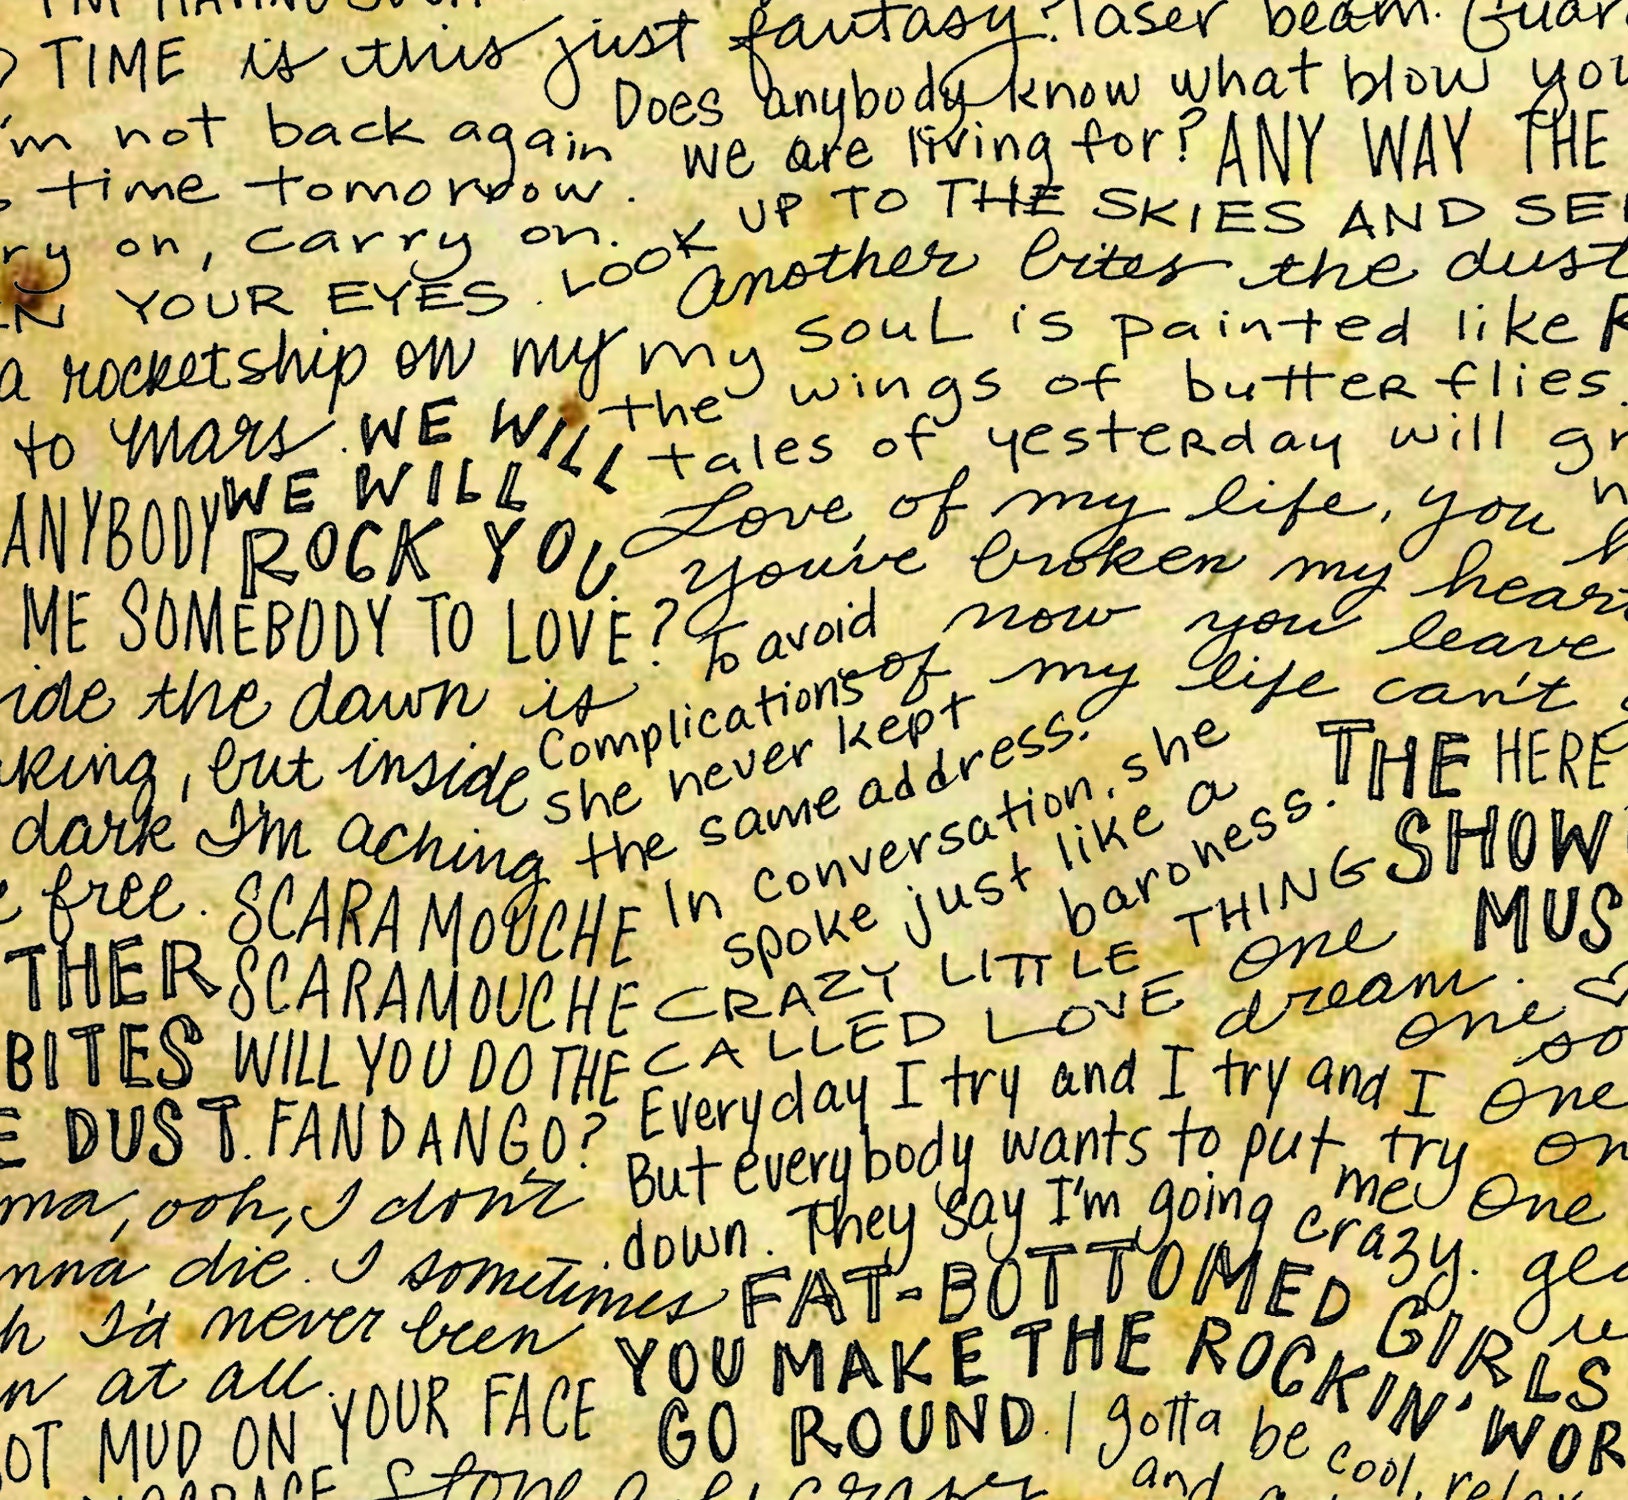 I'M HAVING SUCH
TIME is this just fantasy? laser beam.
Does anybody know what blow
I'm not back again we are living for? ANY WAY THE
time tomorrow. UP TO THE SKIES AND
on, carry on. LOOK another bites the dust
YOUR EYES. soul is painted like
a rocketship on my my wings of butterflies.
to mars. WE WILL the
tales of yesterday will
ANYBODY WE WILL Love of my life, you
ROCK YOU. you've broken my heart
ME SOMEBODY TO LOVE? To avoid now you leave
the dawn is complications of my life can't
but inside she never kept THE HERE
dark I'm aching the same address.
free. SCARAMOUCHE In conversation, she SHOW
spoke just like a
baroness.
THER SCARAMOUCHE CRAZY LITTLE THING one MUS
BITES WILL YOU DO THE CALLED LOVE dream. one
DUST. FANDANGO? Everyday I try and I try and I one
ma, ooh, I don't But everybody wants to put try
down. They say I'm going me one
die. I sometimes crazy.
I'd never been FAT-BOTTOMED GIRLS
at all. YOU MAKE THE ROCKIN' WOR
MUD ON YOUR FACE GO ROUND. I gotta be cool,
and